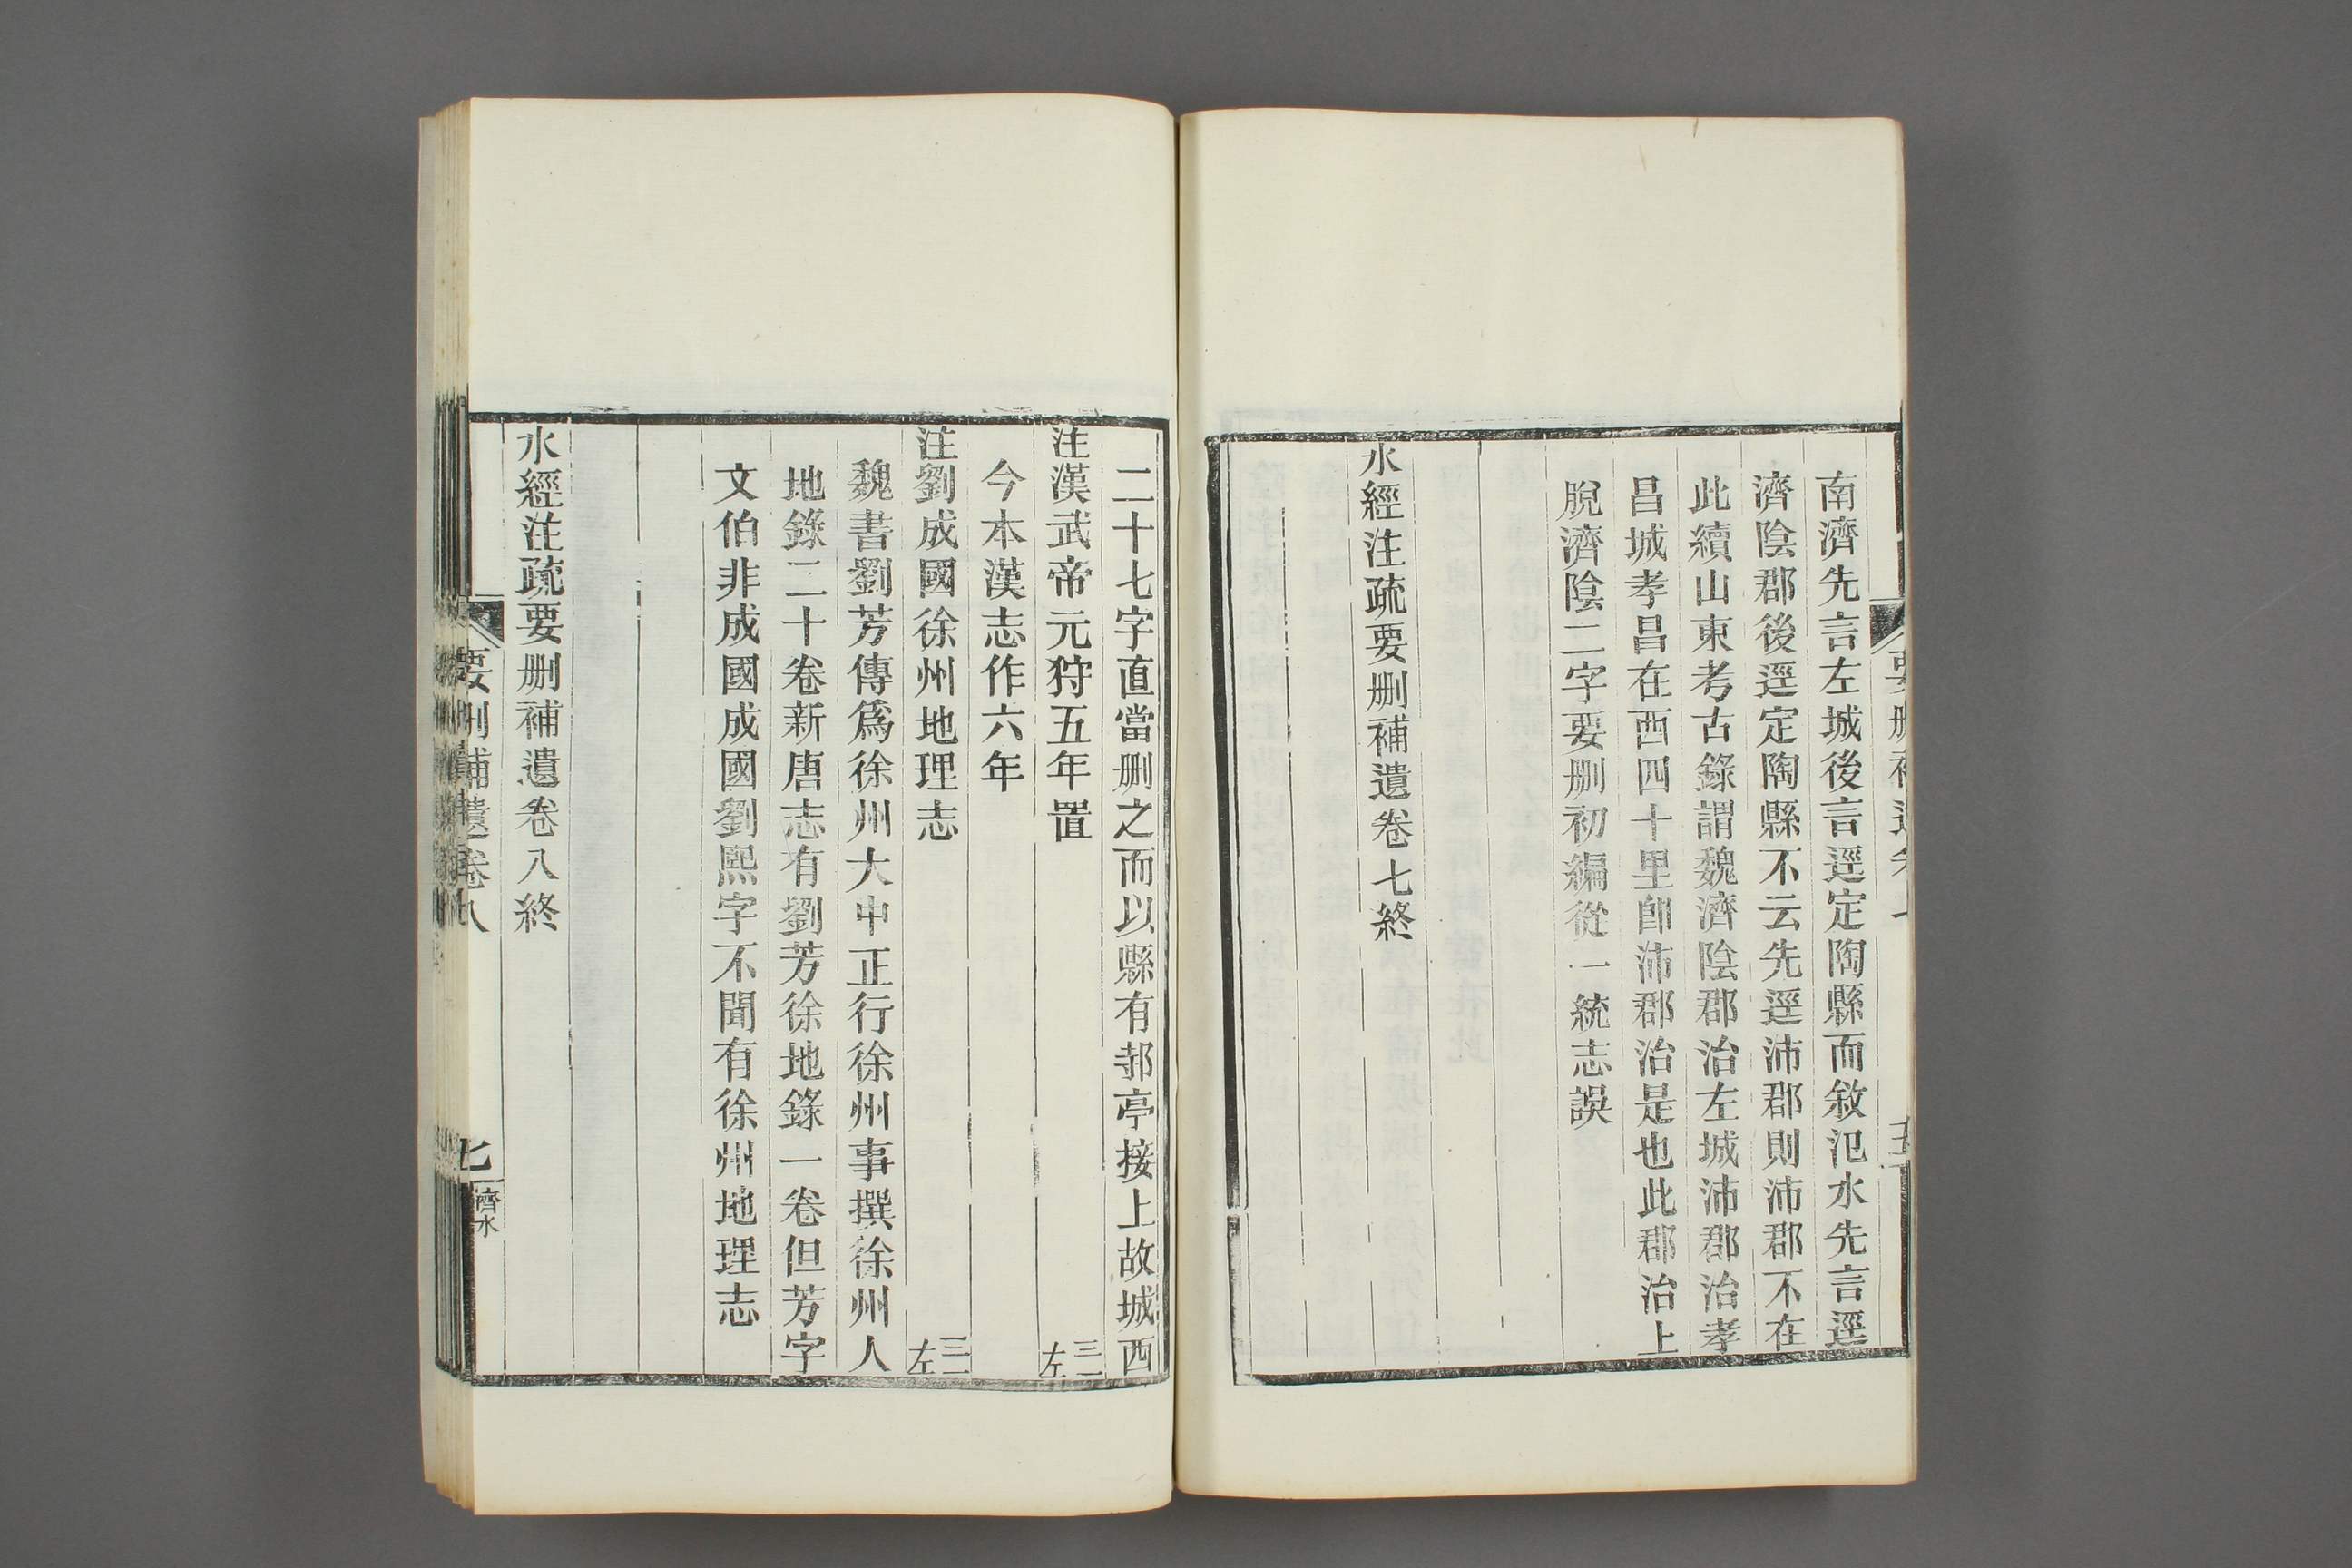 南濟先言左城後言逕定陶縣而敘氾水先言逕
濟陰郡後逕定陶縣不云先逕沛郡則沛郡不在
此續山東考古錄謂魏濟陰郡治左城沛郡治孝
昌城孝昌在西四十里卽沛郡治是也此郡治上
脫濟陰二字要删初編從一統志誤
水經注疏要删補遺卷七終
二十七字直當删之而以縣有郝亭接上故城西
注漢武帝元狩五年置 三二左
今本漢志作六年
注劉成國徐州地理志 三二左
魏書劉芳傳爲徐州大中正行徐州事撰徐州人
地錄二十卷新唐志有劉芳徐地錄一卷但芳字
文伯非成國成國劉熙字不聞有徐州地理志
水經注疏要删補遺卷八終
要删補遺卷八
七
濟水